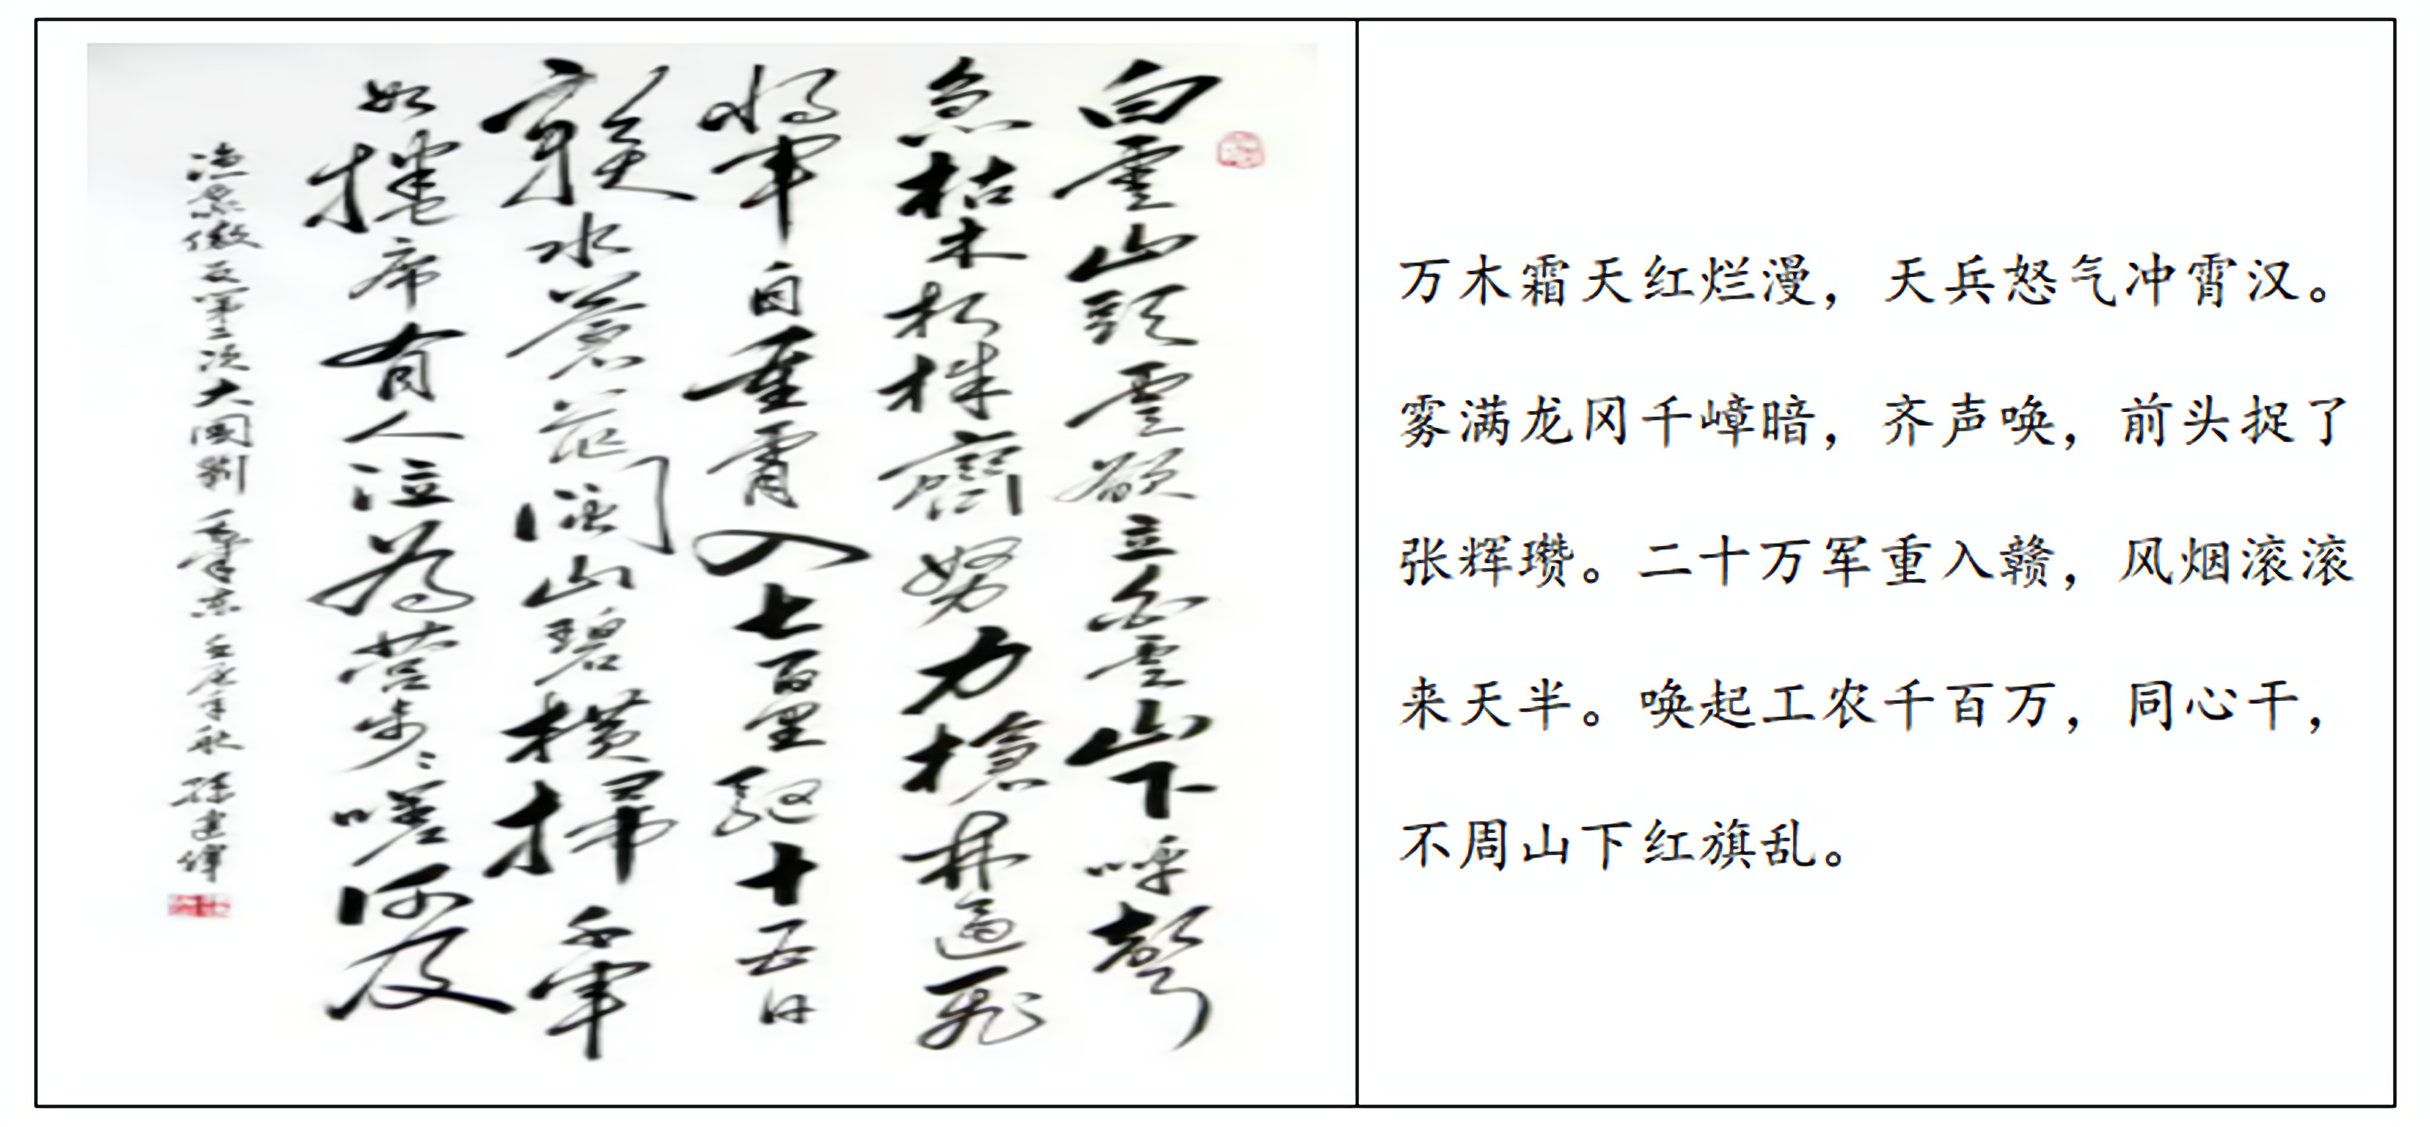 白雲山頭雲欲立白雲山下呼聲
急枯木朽株齊努力槍林逼飛
将軍自重霄入七百里驱十五日
赣水蒼茫闽山碧横掃千軍
如捲席有人泣為营步々嗟何及
渔家傲反第二次大围剿 毛泽东 壬辰年秋 孫建偉
万木霜天红烂漫，天兵怒气冲霄汉。
雾满龙冈千嶂暗，齐声唤，前头捉了
张辉瓒。二十万军重入赣，风烟滚滚
来天半。唤起工农千百万，同心干，
不周山下红旗乱。